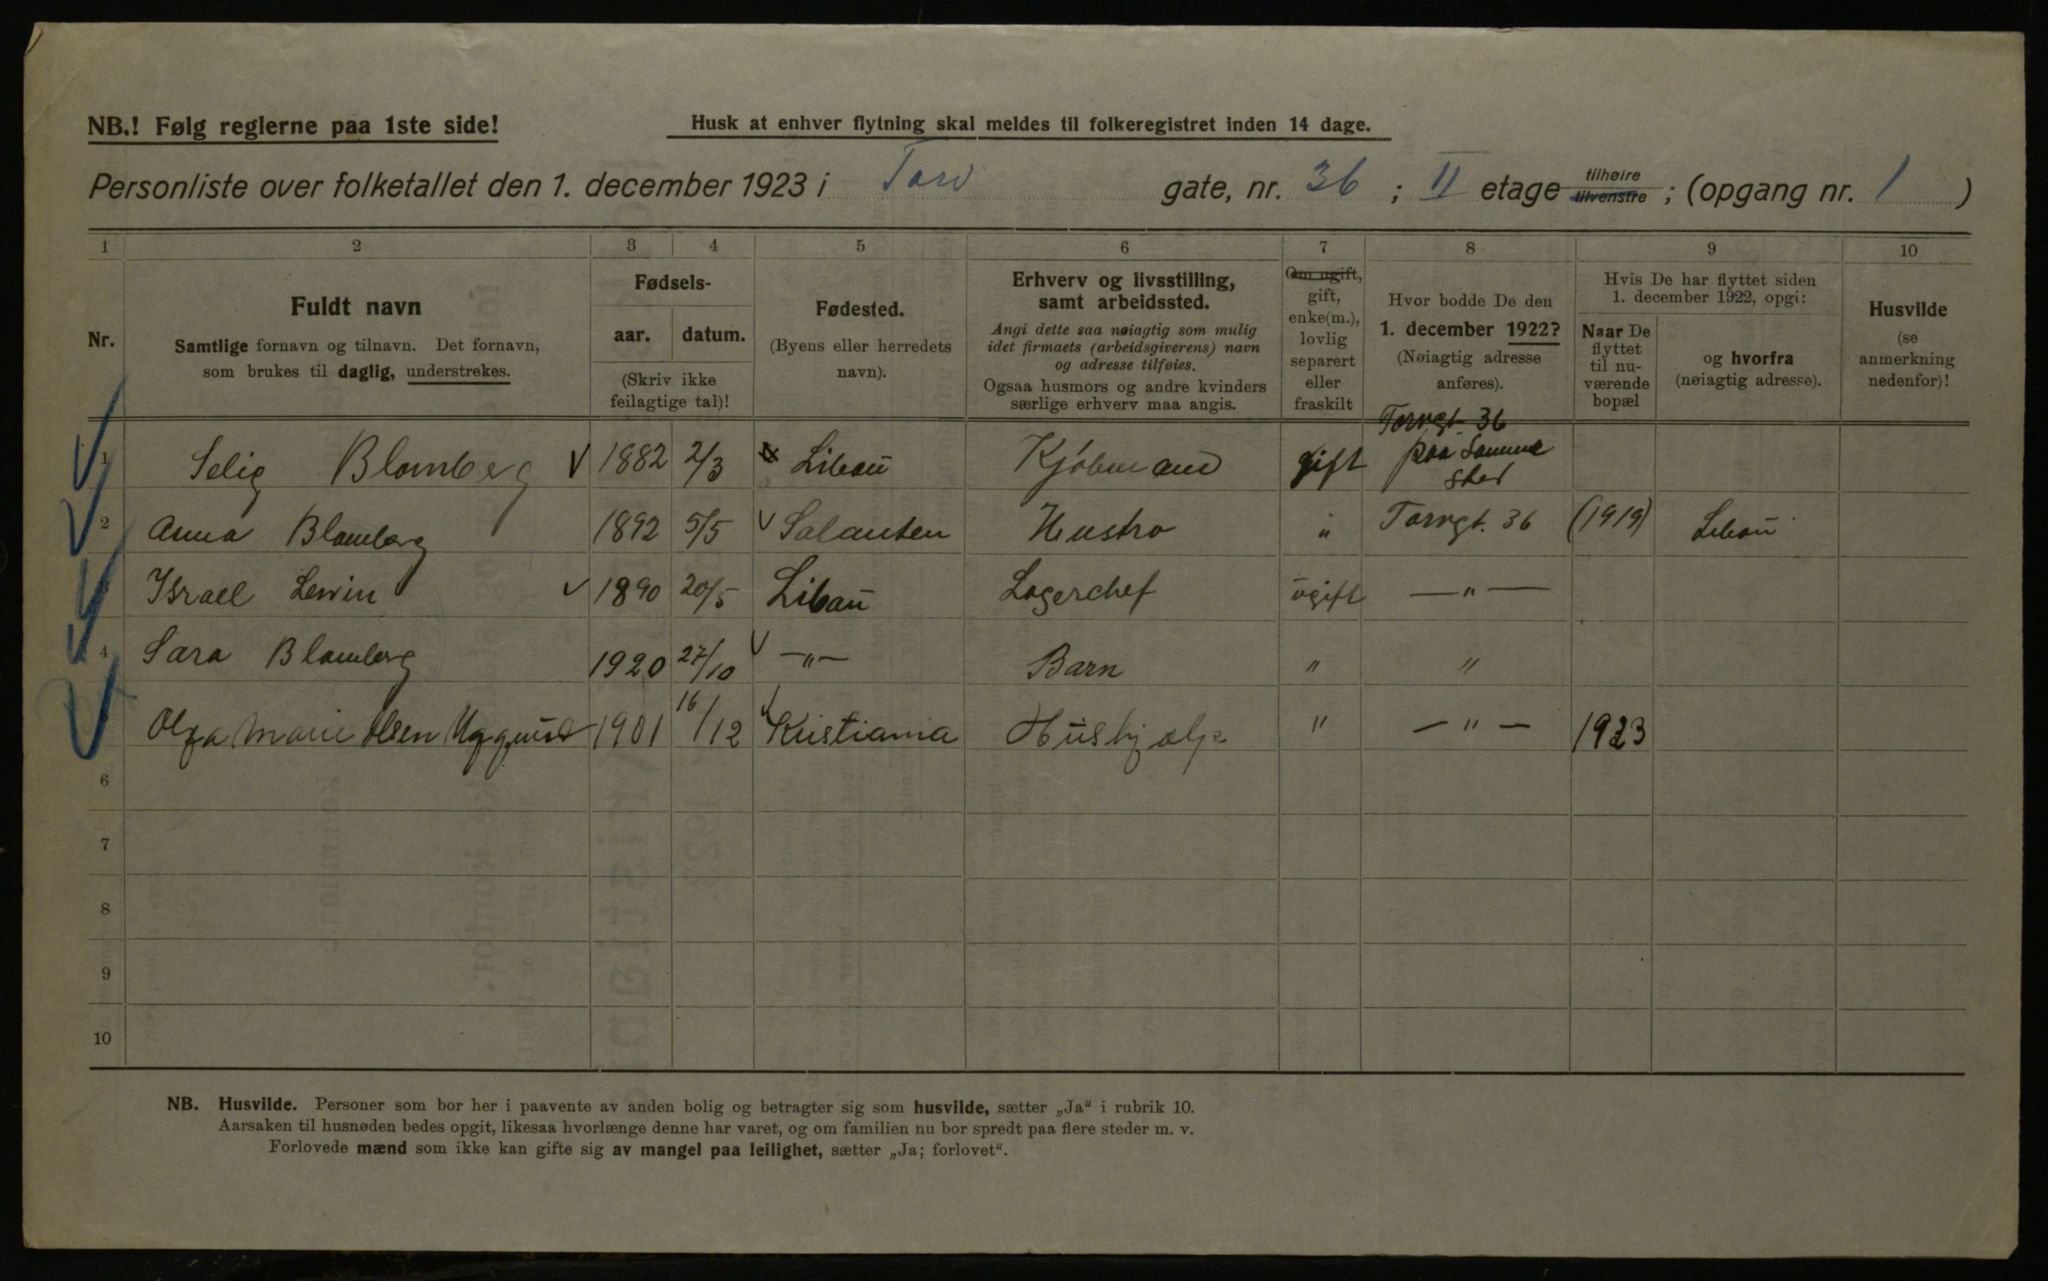 NB.! Følg reglerne paa 1ste side!
Husk at enhver flytning skal meldes til folkeregistret inden 14 dage.
Personliste over folketallet den 1. december 1923 i Torv gate, nr. 36 ; II etage tilhøire tilvenstre ; (opgang nr. 1 )
1 2 3 4 5 6 7 8 9 10
Nr.
Fuldt navn
Samtlige fornavn og tilnavn. Det fornavn,
som brukes til daglig, understrekes.
Fødsels-
aar. datum.
(Skriv ikke
feilagtige tal)!
Fødested.
(Byens eller herredets
navn).
Erhverv og livsstilling,
samt arbeidssted.
Angi dette saa nøiagtig som mulig
idet firmaets (arbeidsgiverens) navn
og adresse tilføies.
Ogsaa husmors og andre kvinders
særlige erhverv maa angis.
Om ugift,
gift,
enke(m.),
lovlig
separert
eller
fraskilt
Hvor bodde De den
1. december 1922?
(Nøiagtig adresse
anføres).
Hvis De har flyttet siden
1. december 1922, opgi:
Naar De
flyttet
til nu-
værende
bopæl
og hvorfra
(nøiagtig adresse).
Husvilde
(se
anmerkning
nedenfor)!
1 Selig Blomberg 1882 2/3 Libau Kjøbmand gift Torvgt. 36
paa Samme
sted
2 Anna Blomberg 1892 5/5 Salanten Hustro " Torvgt. 36 (1919) Libau
Israel Lewin 1890 20/5 Libau Lagerchef ugift — " —
4 Sara Blomberg 1920 27/10 — " — Barn " "
Olga Marie Olsen 1901 16/12 Kristiania Hushjælp " — " — 1923
6
7
8
9
10
NB. Husvilde. Personer som bor her i paavente av anden bolig og betragter sig som husvilde, sætter „Ja“ i rubrik 10.
Aarsaken til husnøden bedes opgit, likesaa hvorlænge denne har varet, og om familien nu bor spredt paa flere steder m. v.
Forlovede mænd som ikke kan gifte sig av mangel paa leilighet, sætter „Ja; forlovet“.